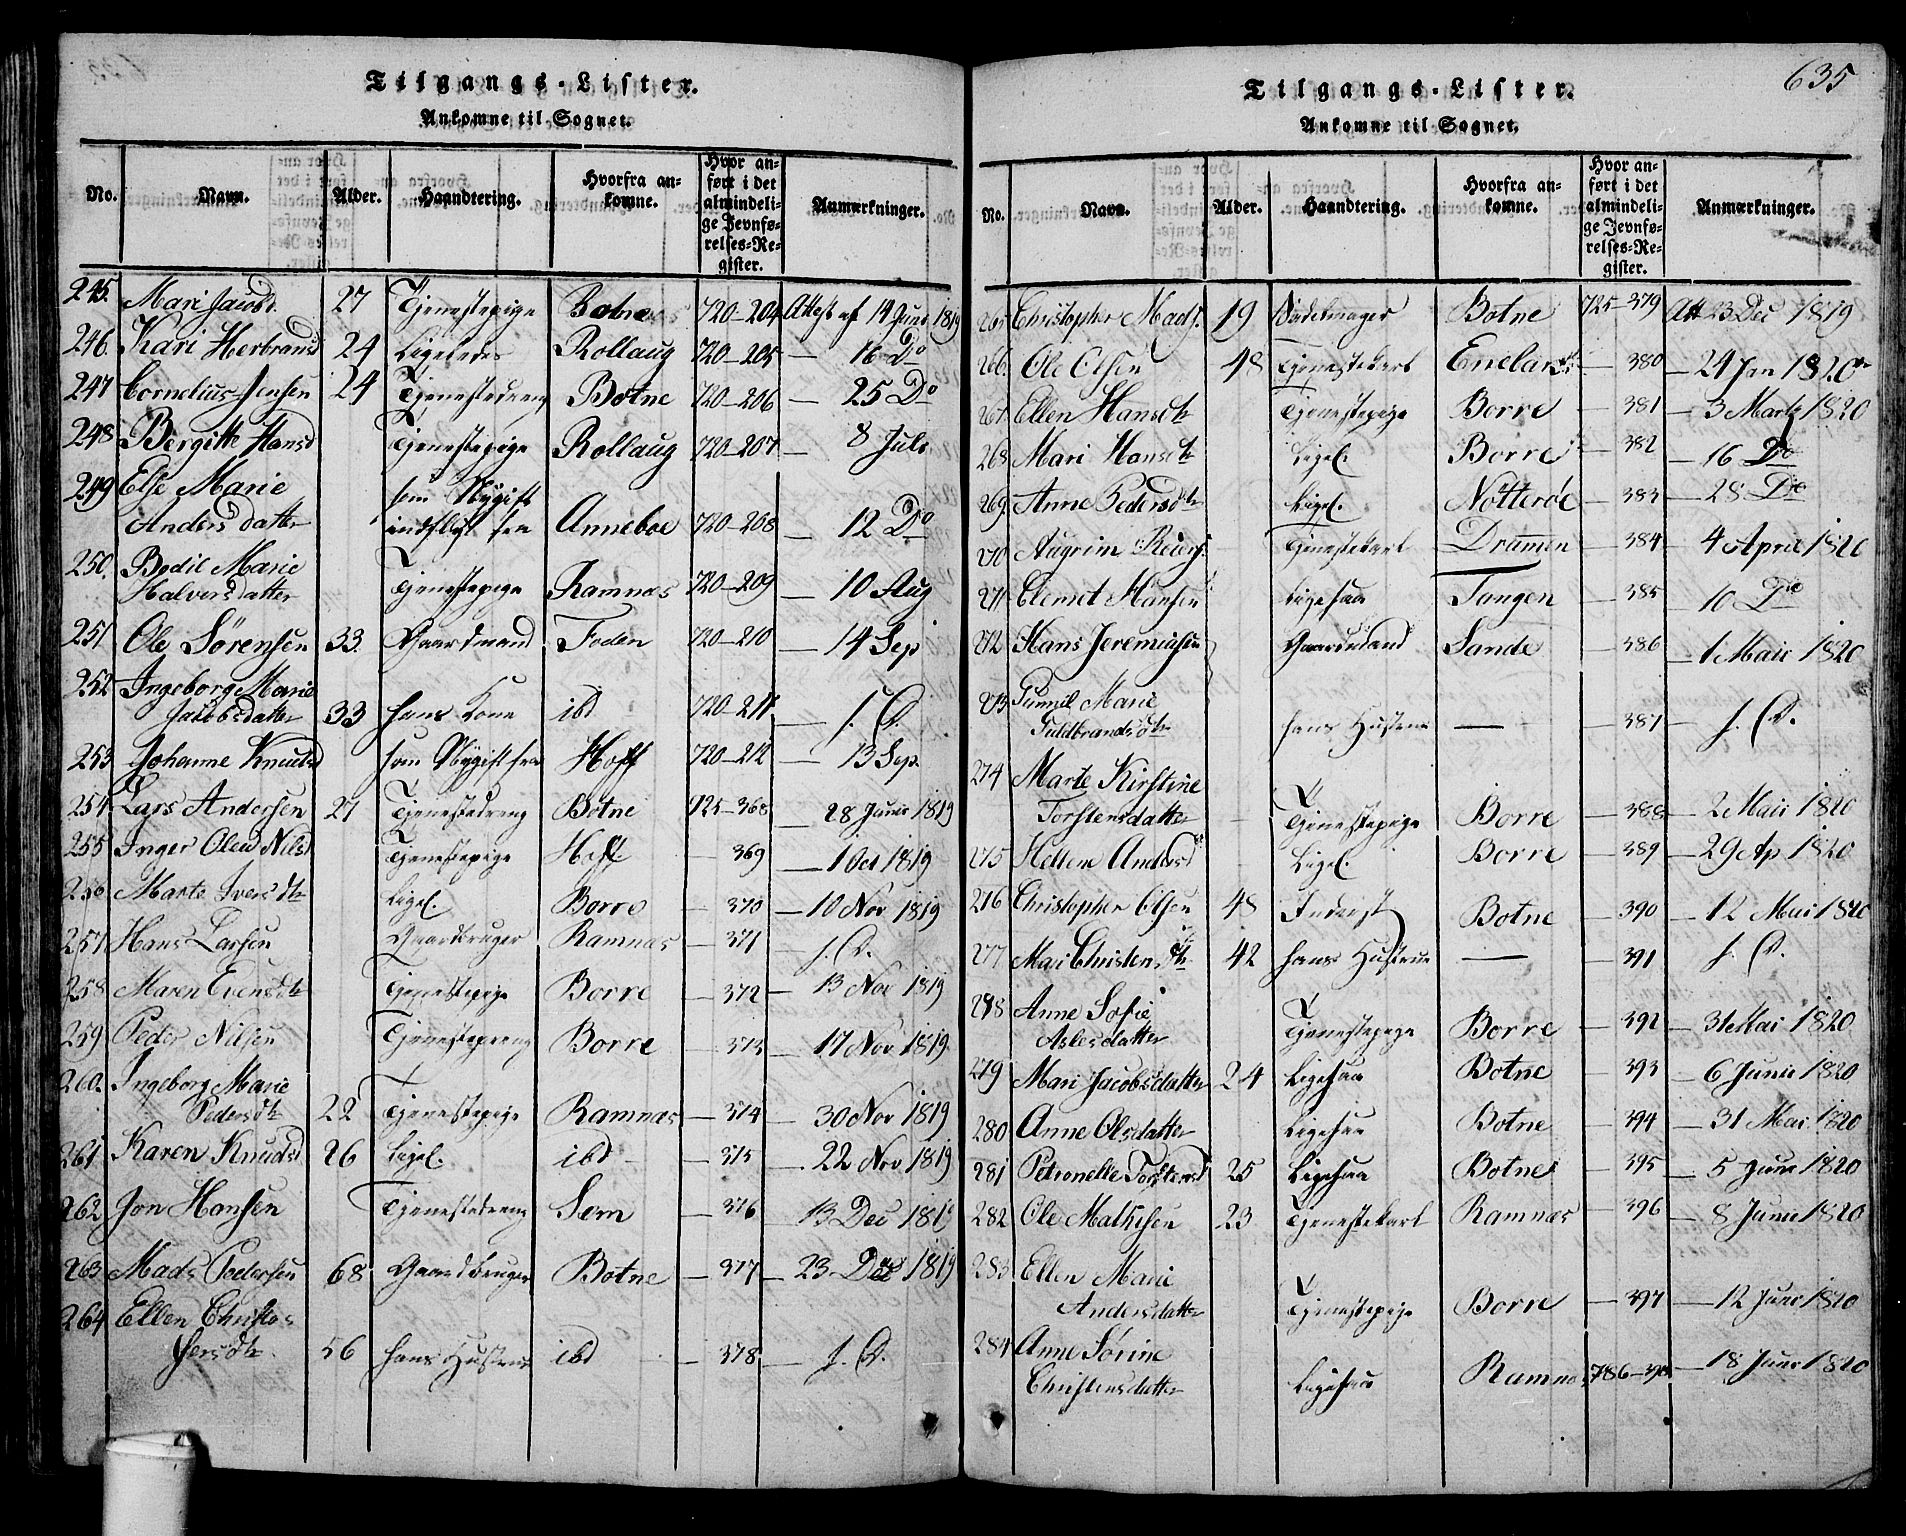 Tilgangs-Lister.
Ankomne til Sognet.
No. Navn. Alder. Haandtering. Hvorfra an-komne. Hvor an-ført i det almindeli-ge Jevnfø-relses-Re-gister. Anmærkninger.
245. Mari Jacobsd 27 Tjenestepige Botne 720-204 Attest af 14 Juni 1819
246. Kari Herbransd 24 Ligeledes Rollaug 720-205 — 16 Do
247 Cornelius Jensen 24 Tjenestedreng Botne 720-206 — 25 Do
248 Bergitte Hansd Tjenestepige Rollaug 720-207 — 8 Juli
249 Else Marie som Nygift
Anders datter indflyt fra Anneboe 720-208 — 12 Do
250. Bodil Marie
Halversdatter Tjenestepige Ramnas 720-209 — 10 Aug
251 Ole Sørensen 33 Gaardmand Foden 720-210 — 14 Sep
252 Ingeborg Marie
Jacobsdatter 33 hans Kone ibd 720-211 — f. D.
253 Johanne Knutsd som Nygift fra Hoff 720-212 — 13 Sep.
254 Lars Andersen 27 Tjenestedreng Botne 725-368 — 28 Juni 1819
255 Inger Olea Nilsd Tjenestepige Hoff — 369 — 1 Oct 1819
256 Marte Ivers dtr Ligel. Borre — 370 — 10 Nov 1819
257 Hans Larsen Gaardbruger Ramnas — 371 f. D.
258 Maren Evensdtr Tjenestepige Borre — 372 — 13 Nov 1819
259 Peder Nilsen Tjenestedreng Borre — 373 — 17 Nov 1819
260. Ingeborg Marie
Pedersdtr 22 Tjenestepige Ramnas — 374 — 30 Nov 1819
261 Karen Knudsd 26 Ligel. ibd — 375 — 22 Nov 1819
262 Jon Hansen Tjenestedreng Sem — 376 — 13 Dec 1819
263 Mads Pedersen 68 Gaardbruger Botne — 377 — 23 Dec 1819
264 Ellen Christo-
fersdtr. 56 hans Hustrue ibd — 378 — f. D.
635
Tilgangs-Lister.
Ankomne til Sognet.
No. Navn. Alder. Haandtering. Hvorfra an-komne. Hvor an-ført i det almindeli-ge Jevnfø-relses-Re-gister. Anmærkninger.
265 Christopher Mads. 19 Sadelmager Botne 725-379 Att 23 Dec 1819
266. Ole Olsen 48 Tjenestekarl — 380 — 24 Jan 1820
267 Ellen Hansdtr Tjenestepige Borre — 381 — 3 Marts 1820
268 Mari Hansdtr Ligel. Borre — 382 — 16 Do
269. Anne Pedersdtr Ligel. Nøtterøe — 383 — 28 Do
270 Augrim Reiers. Tjenestekarl Dramen — 384 — 4 April 1820
271 Clemet Hansen Ligesaa Tangen — 385 — 10 Do
272 Hans Jeremiasen Gaardmand Sande — 386 — 1 Maii 1820
273 Gunnil Marie
Guldbrandsdtr hans Hustrue — 387 — f. D.
274 Marte Kirstine
Torstensdatter Tjenestepige Borre — 388 — 2 Maii 1820
275 Hellene Andersd Ligel. Borre — 389 — 29 Ap 1820
276 Christopher Olsen 48 Inderst Botne — 390 — 12 Mai 1820
277 Mari Christensdtr 42 hans Hustrue — 391 — f. D.
278 Anne Sofie
Aslesdatter Tjenestepige Borre — 392 — 31 Mai 1820
279 Mari Jacobsdatter 24 Ligesaa Botne — 393 — 6 Junii 1820
280 Anne Olsdatter Ligesaa Botne — 394 — 31 Mai 1820
281 Petronelle Torstensd 25 Ligesaa Botne — 395 — 5 Juni 1820
282 Ole Mathisen 23 Tjenestekarl Ramnas — 396 — 8 Junii 1820
283 Ellen Marie
Andersdatter Tjenestepige Borre — 397 — 12 Juni 1820
284 Anne Sørine
Christensdatter Ligesaa Ramnas 786-398 — 18 Juni 1820